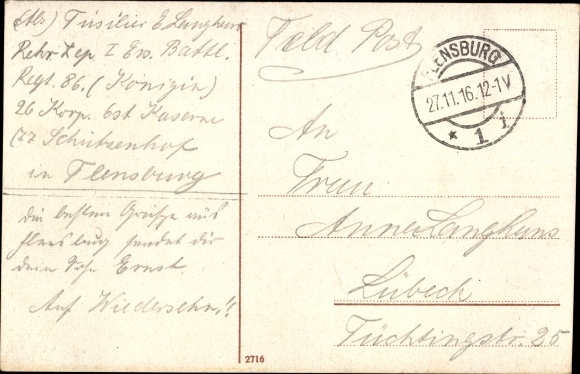 (Abs) Füsilier E. Langhans
Rekr. Dep I Ers. Battl.
Regt. 86. (Königin)
26 Korp. 6st Kaserne
Schützenhof
in Flensburg
die besten Grüße aus
Flensburg sendet dir
dein Sohn Ernst
Auf Wiedersehn!!
Feld Post
FLENSBURG
27.11.16.12-1V
* 1 i
An
Frau
Anna Langhans
Lübeck
Tüchtingstr. 25
2716